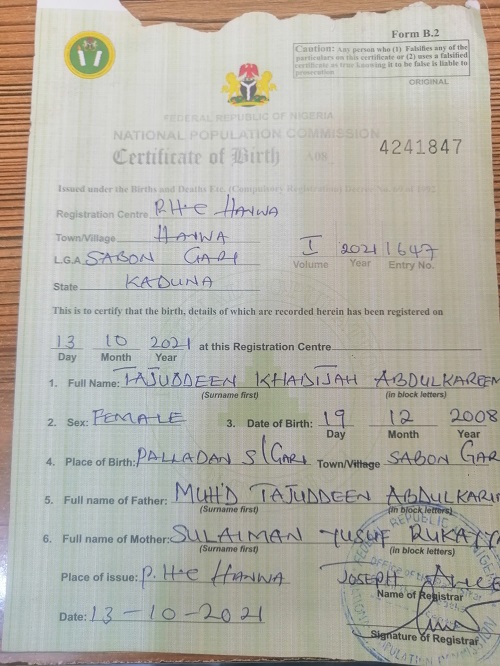 Form B.2
Caution: Any person who (1) Falsifies any of the
particulars on this certificate or (2) uses a falsified
certificate as true knowing it to be false is liable to
prosecution
ORIGINAL
FEDERAL REPUBLIC OF NIGERIA
NATIONAL POPULATION COMMISSION
Certificate of Birth A08
4241847
Issued under the Births and Deaths Etc. (Compulsory Registration) Decree No. 69 of 1992
Registration Centre P.H.C HANWA
Town/Village HANWA
L.G.A SABON GARI
I 2021 1647
Volume Year Entry No.
State KADUNA
This is to certify that the birth, details of which are recorded herein has been registered on
13 10 2021 at this Registration Centre
Day Month Year
1. Full Name: TAJUDDEEN KHADIJAH ABDULKAREEM
(Surname first) (in block letters)
2. Sex: FEMALE 3. Date of Birth: 19 12 2008
Day Month Year
4. Place of Birth: PALLADAN S/GARI Town/Village SABON GAR
5. Full name of Father: MUH'D TAJUDDEEN ABDULKARI
(Surname first) (in block letters)
6. Full name of Mother: SULAIMAN YUSUF RUKAYYA
(Surname first) (in block letters)
Place of issue: P.H.C HANWA JOSEPH
Name of Registrar
Date: 13-10-2021
Signature of Registrar